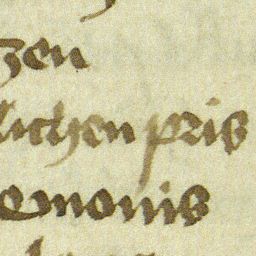 zen
lichen pris
emonis